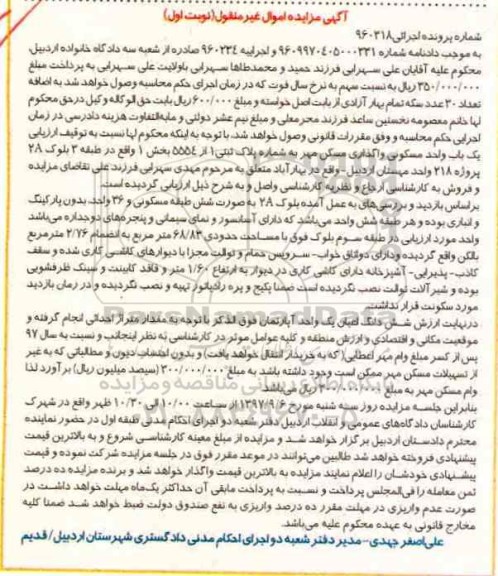 آگهی مزایده اموال غیر منقول(نوبت اول)
شماره پرونده اجرائی۹۶۰۳۱۸
به موجب دادنامه شماره ۹۶۰۹۹۷۰۴۰۵۰۰۰۲۳۱ و اجراییه ۹۶۰۲۳۴ صادره از شعبه سه دادگاه خانواده اردبیل،
محکوم علیه آقایان علی سهرابی فرزند حمید و محمدطاها سهرابی باولایت علی سهرابی به پرداخت مبلغ
۳۵۰/۰۰۰/۰۰۰ ریال به نسبت سهم به نرخ سال فوت که در زمان اجرای حکم محاسبه وصول خواهد شد به اضافه
تعداد ۳۰ عدد سکه تمام بهار آزادی از بابت اصل خواسته و مبلغ ۶۰۰/۰۰۰ ریال بابت حق الوکاله وکیل در حق محکوم
لها خانم معصومه نخستین ساعد فرزند محرمعلی و مبلغ نیم عشر دولتی و مابه‌التفاوت هزینه دادرسی در زمان
اجرایی حکم محاسبه و وفق مقررات قانونی وصول خواهد شد. با توجه به اینکه محکوم لها نسبت به توقیف ارزیابی
یک باب واحد مسکونی و واگذاری مسکن مهر به شماره پلاک ثبتی۱ از ۵۵۵۴ بخش ۱ واقع در طبقه ۳ بلوک ۲A
پروژه ۲۱۸ واحد مهستان اردبیل- واقع در بهارآباد متعلق به مرحوم مهدی سهرابی فرزند علی تقاضای مزایده
و فروش به کارشناسی ارجاع و نظریه کارشناسی واصل و به شرح ذیل ارزیابی گردیده است.
براساس بازدید و بررسی‌های به عمل آمده بلوک ۲A به صورت شش طبقه مسکونی و ۳۶ واحد، بدون پارکینگ
و انباری بوده و هر طبقه شش واحد می‌باشد که دارای آسانسور و نمای سیمانی و پنجره‌های دوجداره می‌باشد
واحد مورد ارزیابی در طبقه سوم بلوک فوق با مساحت حدودی ۶۸/۸۳ متر مربع به انضمام ۲/۷۶ مترمربع
بالکن واقع گردیده و دارای دو اتاق خواب- سرویس حمام و توالت مجزا با دیوارهای کاشی کاری شده و سقف
کاذب- پذیرایی- آشپزخانه دارای کاشی کاری در دیوار به ارتفاع ۱/۶۰ متر و فاقد کابینت و سینک ظرفشویی
بوده و شیرآلات توالت نصب نگردیده است ضمنا پکیج و پره رادیاتور تهیه و نصب نگردیده و در زمان بازدید
مورد سکونت قرار نداشت.
در نهایت ارزش شش دانگ اعیان یک واحد آپارتمان فوق الذکر با توجه به مقدار متراژ احداثی انجام گرفته و
موقعیت مکانی و اقتصادی و ارزش منطقه و کلیه عوامل موثر در کارشناسی به نظر اینجانب و نسبت به سال ۹۷
پس از کسر مبلغ وام مهر اعطایی( که به خریدار انتقال خواهد یافت) و بدون احتساب دیون و مطالباتی که به غیر
از تسهیلات مسکن مهر ممکن است وجود داشته باشد به مبلغ ۳۰۰/۰۰۰/۰۰۰ (سیصد میلیون ریال) برآورد لذا
وام مسکن مهر به مبلغ ۳۰۰/۰۰۰/۰۰۰ ریال می‌باشد.
بنابراین جلسه مزایده روز سه شنبه مورخ ۱۳۹۷/۹/۶ از ساعت ۱۰/۰۰ الی ۱۰/۳۰ ظهر واقع در شهرک
کارشناسان دادگاه‌های عمومی و انقلاب اردبیل دفتر شعبه دو اجرای احکام مدنی طبقه اول در حضور نماینده
محترم دادستان اردبیل برگزار خواهد شد و مزایده از مبلغ معینه کارشناسی شروع و به بالاترین قیمت
پیشنهادی فروخته خواهد شد طالبین می‌توانند در موعد مقرر فوق در جلسه مزایده شرکت نموده و قیمت
پیشنهادی خودشان را اعلام نمایند مزایده به بالاترین قیمت واگذار خواهد شد و برنده مزایده ده درصد
ثمن معامله را فی‌المجلس پرداخت و نسبت به پرداخت مابقی آن حداکثر یک‌ماه مهلت خواهد داشت در
صورت عدم واریزی در مهلت مقرر ده درصد واریزی به نفع صندوق دولت ضبط خواهد شد ضمنا کلیه
مخارج قانونی به عهده محکوم علیه می‌باشد.
علی‌اصغر جهدی- مدیر دفتر شعبه دو اجرای احکام مدنی دادگستری شهرستان اردبیل/ قدیم